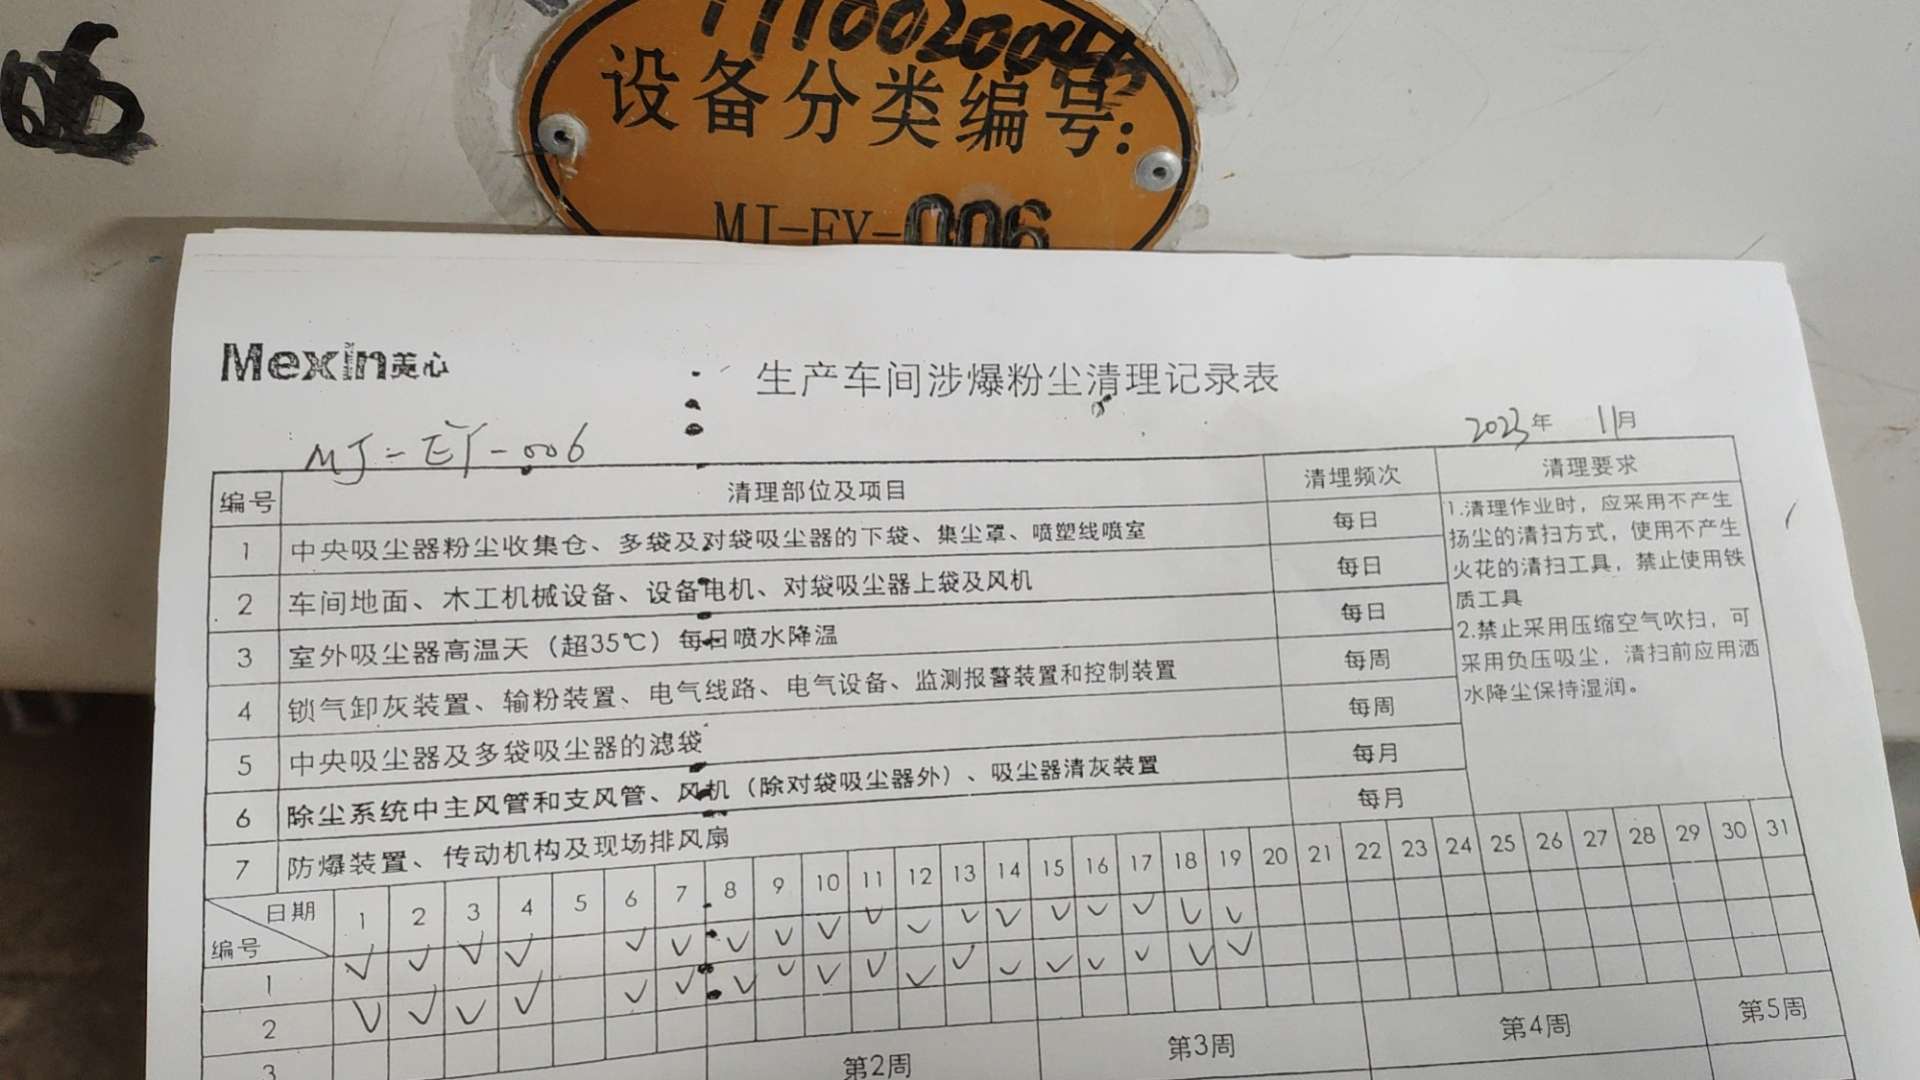 006
设备分类编号:
MJ-EY-006
Mexin美心
生产车间涉爆粉尘清理记录表
MJ-EY-006
2023年 11月
编号 清理部位及项目 清理频次 清理要求
1 中央吸尘器粉尘收集仓、多袋及对袋吸尘器的下袋、集尘罩、喷塑线喷室 每日
2 车间地面、木工机械设备、设备电机、对袋吸尘器上袋及风机 每日
3 室外吸尘器高温天（超35℃）每日喷水降温 每日
4 锁气卸灰装置、输粉装置、电气线路、电气设备、监测报警装置和控制装置 每周
5 中央吸尘器及多袋吸尘器的滤袋 每周
6 除尘系统中主风管和支风管、风机（除对袋吸尘器外）、吸尘器清灰装置 每月
7 防爆装置、传动机构及现场排风扇 每月
1.清理作业时，应采用不产生
扬尘的清扫方式，使用不产生
火花的清扫工具，禁止使用铁
质工具
2.禁止采用压缩空气吹扫，可
采用负压吸尘，清扫前应用洒
水降尘保持湿润。
日期 1 2 3 4 5 6 7 8 9 10 11 12 13 14 15 16 17 18 19 20 21 22 23 24 25 26 27 28 29 30 31
编号
1 ✓ ✓ ✓ ✓ ✓ ✓ ✓ ✓ ✓ ✓ ✓ ✓ ✓ ✓ ✓ ✓ ✓ ✓
2 ✓ ✓ ✓ ✓ ✓ ✓ ✓ ✓ ✓ ✓ ✓ ✓ ✓ ✓ ✓ ✓ ✓ ✓
3
第2周 第3周 第4周 第5周